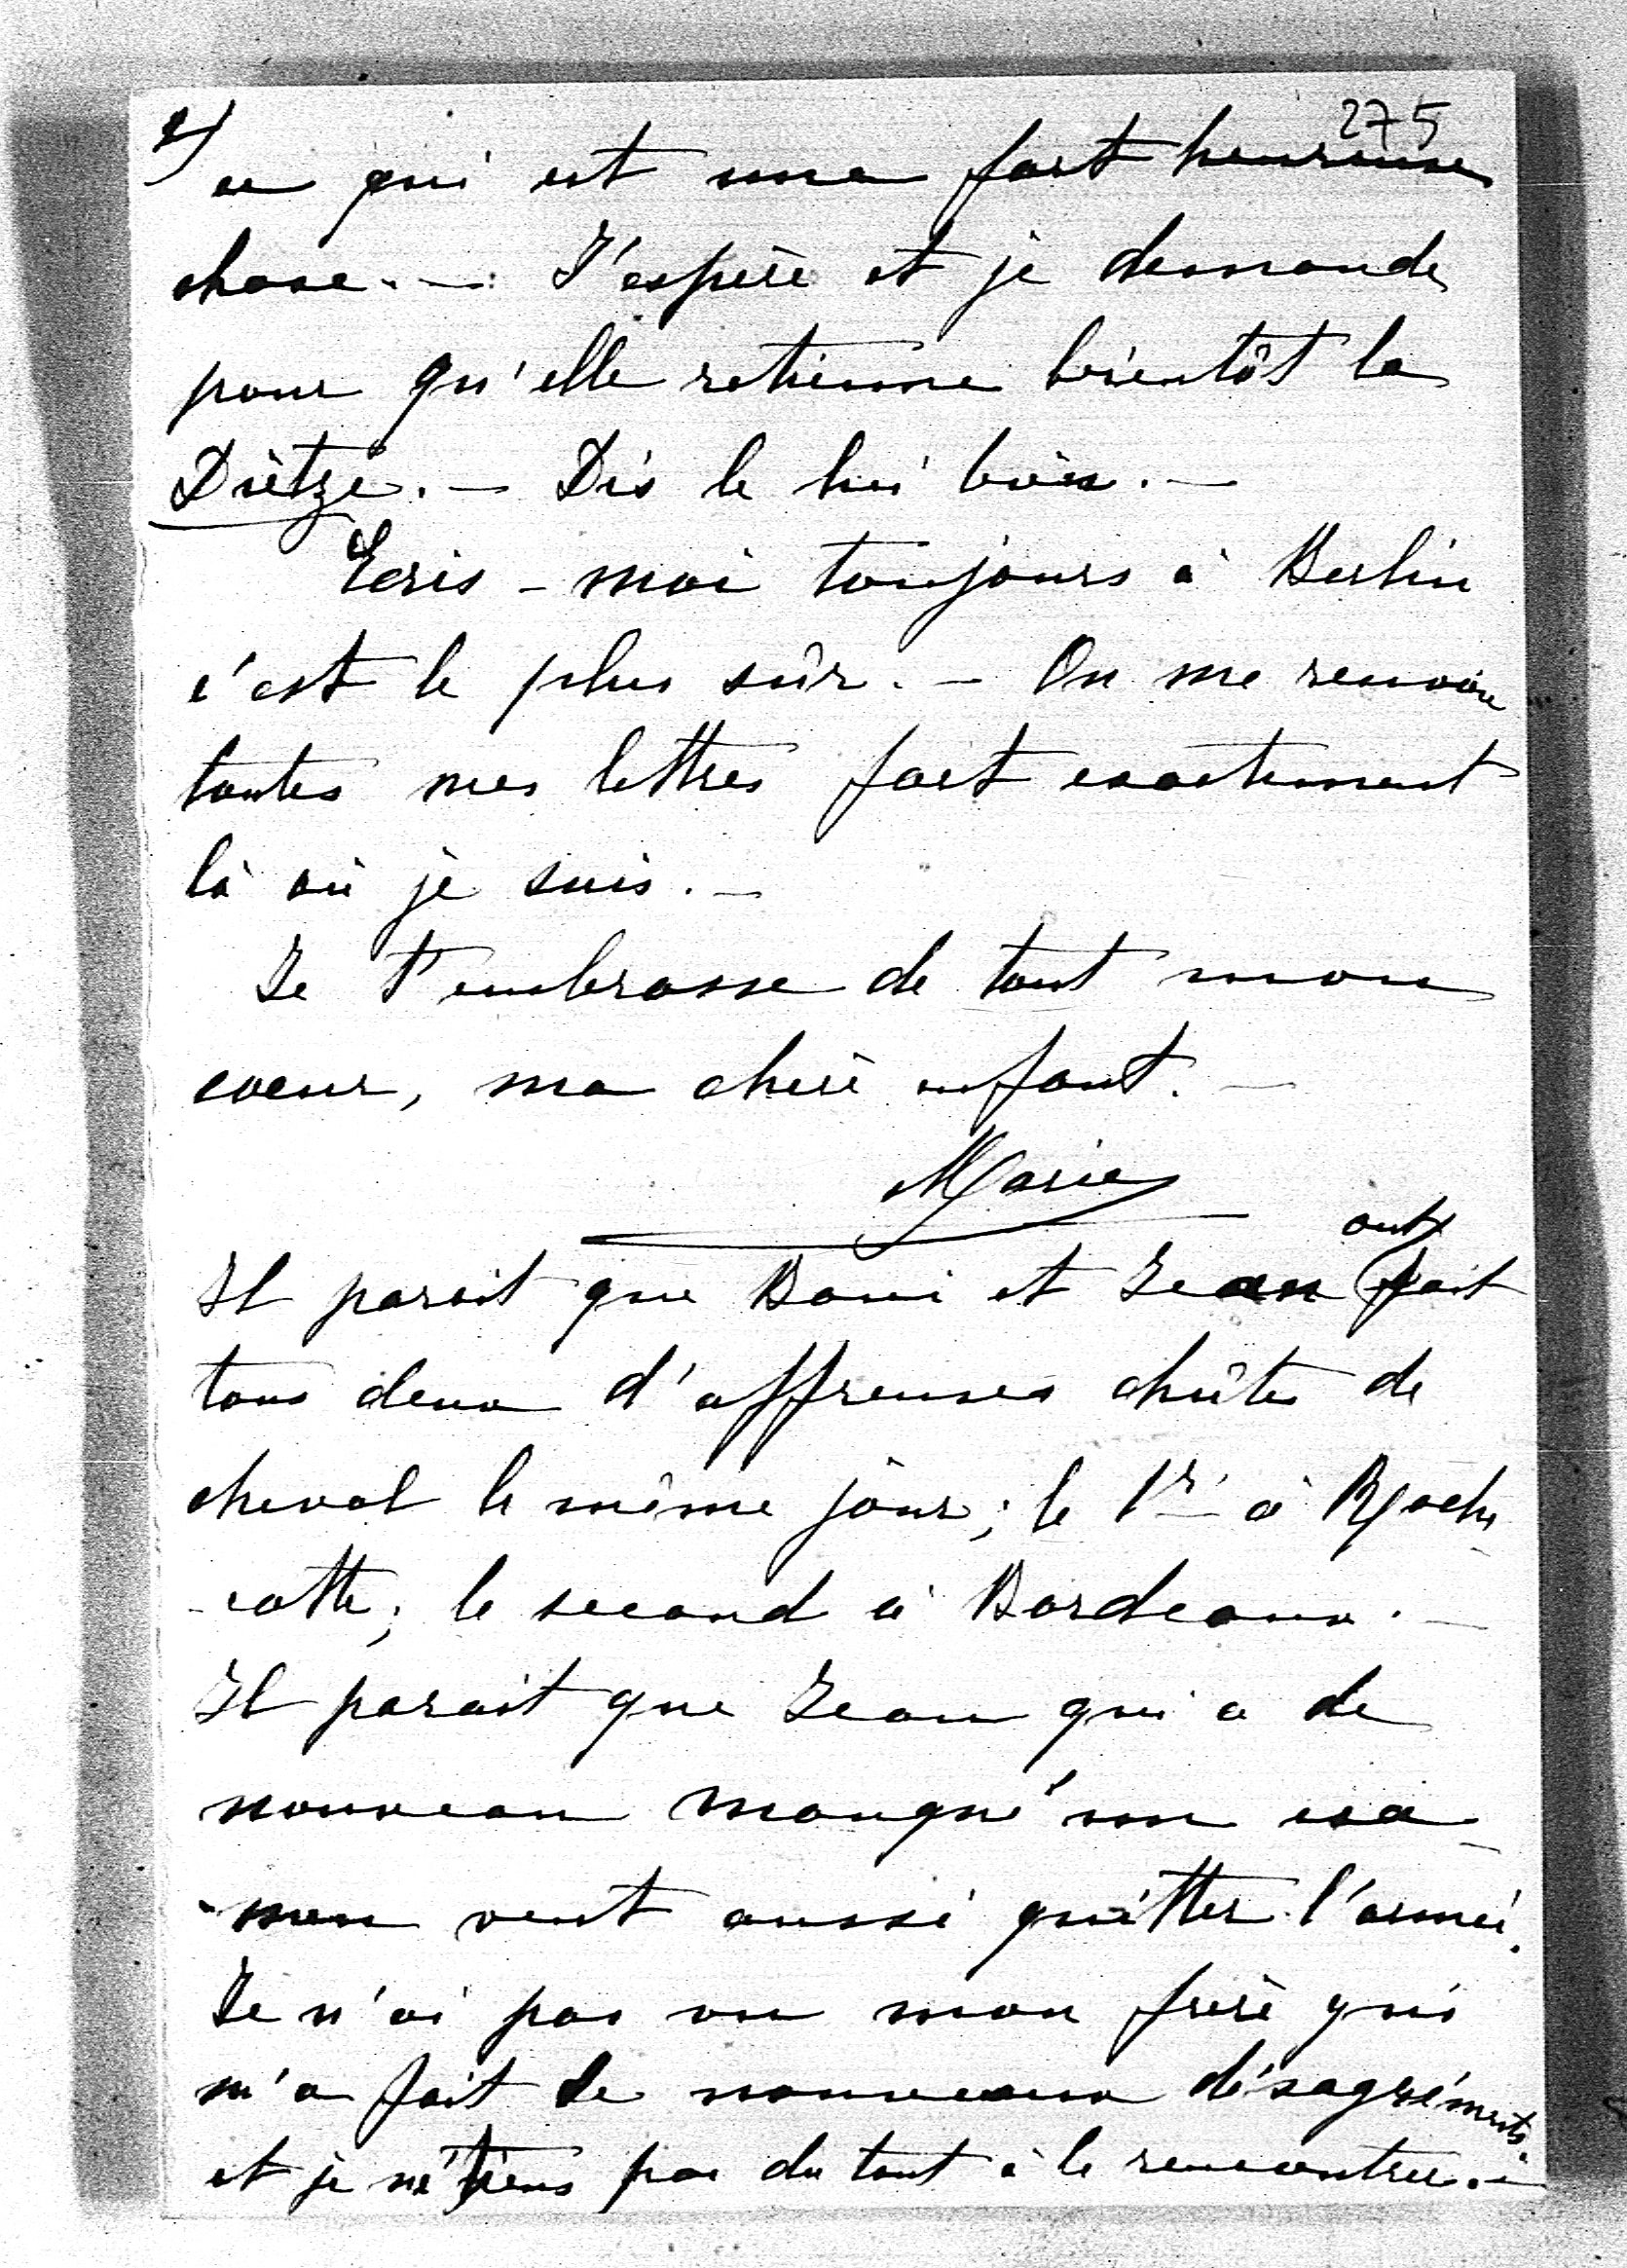 275
2/
ce qui est une fort heureuse
chose. — J'espère et je demande
pour qu'elle retienne bientôt la
Dietze. — Dis le lui bien. —
Ecris-moi toujours à Berlin
c'est le plus sûr. — On me renvoie
toutes mes lettres fort exactement
là où je suis. —
Je t'embrasse de tout mon
coeur, ma chère enfant. —
Marie
Il parait que Boni et Jean ont fait
tous deux d'affreuses chûtes de
cheval le même jour; le 1r à Roche
-cotte; le second à Bordeaux. —
Il parait que Jean qui a de
nouveau manqué son exa-
-men veut aussi quitter l'armée.
Je n'ai pas vu mon frère qui
m'a fait de nouveaux désagréments.
et je ne tiens pas du tout à le rencontrer. —